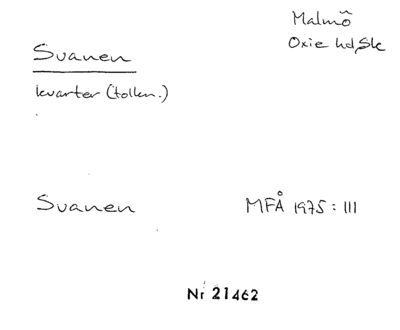 Malmö
Oxie hd, Sk
Svanen
kvarter (tolkn.)
Svanen
MFÅ 1975:111
Nr 21462